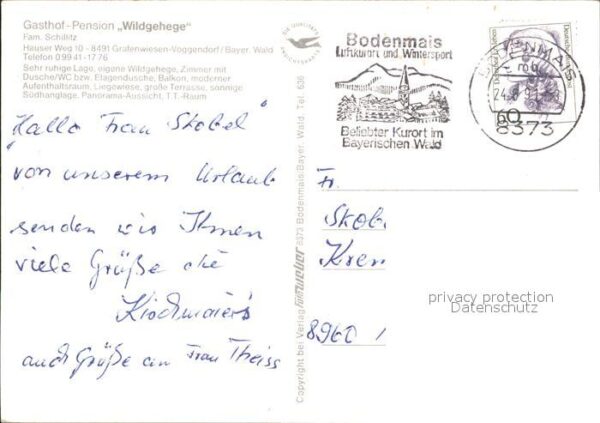 Gasthof-Pension „Wildgehege"
Fam. Schillitz
Hauser Weg 10 - 8491 Grafenwiesen-Voggendorf/Bayer. Wald
Telefon 09941-1776
Sehr ruhige Lage, eigene Wildgehege, Zimmer mit
Dusche/WC bzw. Etagendusche, Balkon, moderner
Aufenthaltsraum, Liegewiese, große Terrasse, sonnige
Südhanglage, Panorama-Aussicht, T.T.-Raum
"Hallo Frau Skobel"
von unserem Urlaub
senden wir Ihnen
viele Grüße die
Kirchmaier's
auch Grüße an Frau Theiss
Copyright bei Verlag weber 8373 Bodenmais/Bayer. Wald, Tel. 636
DIE QUALITÄTS
Bodenmais
Luftkurort und Wintersport
Beliebter Kurort im
Bayerischen Wald
BODENMAIS
8373
60
Fr.
Skob
Kren
8960 1
privacy protection
Datenschutz